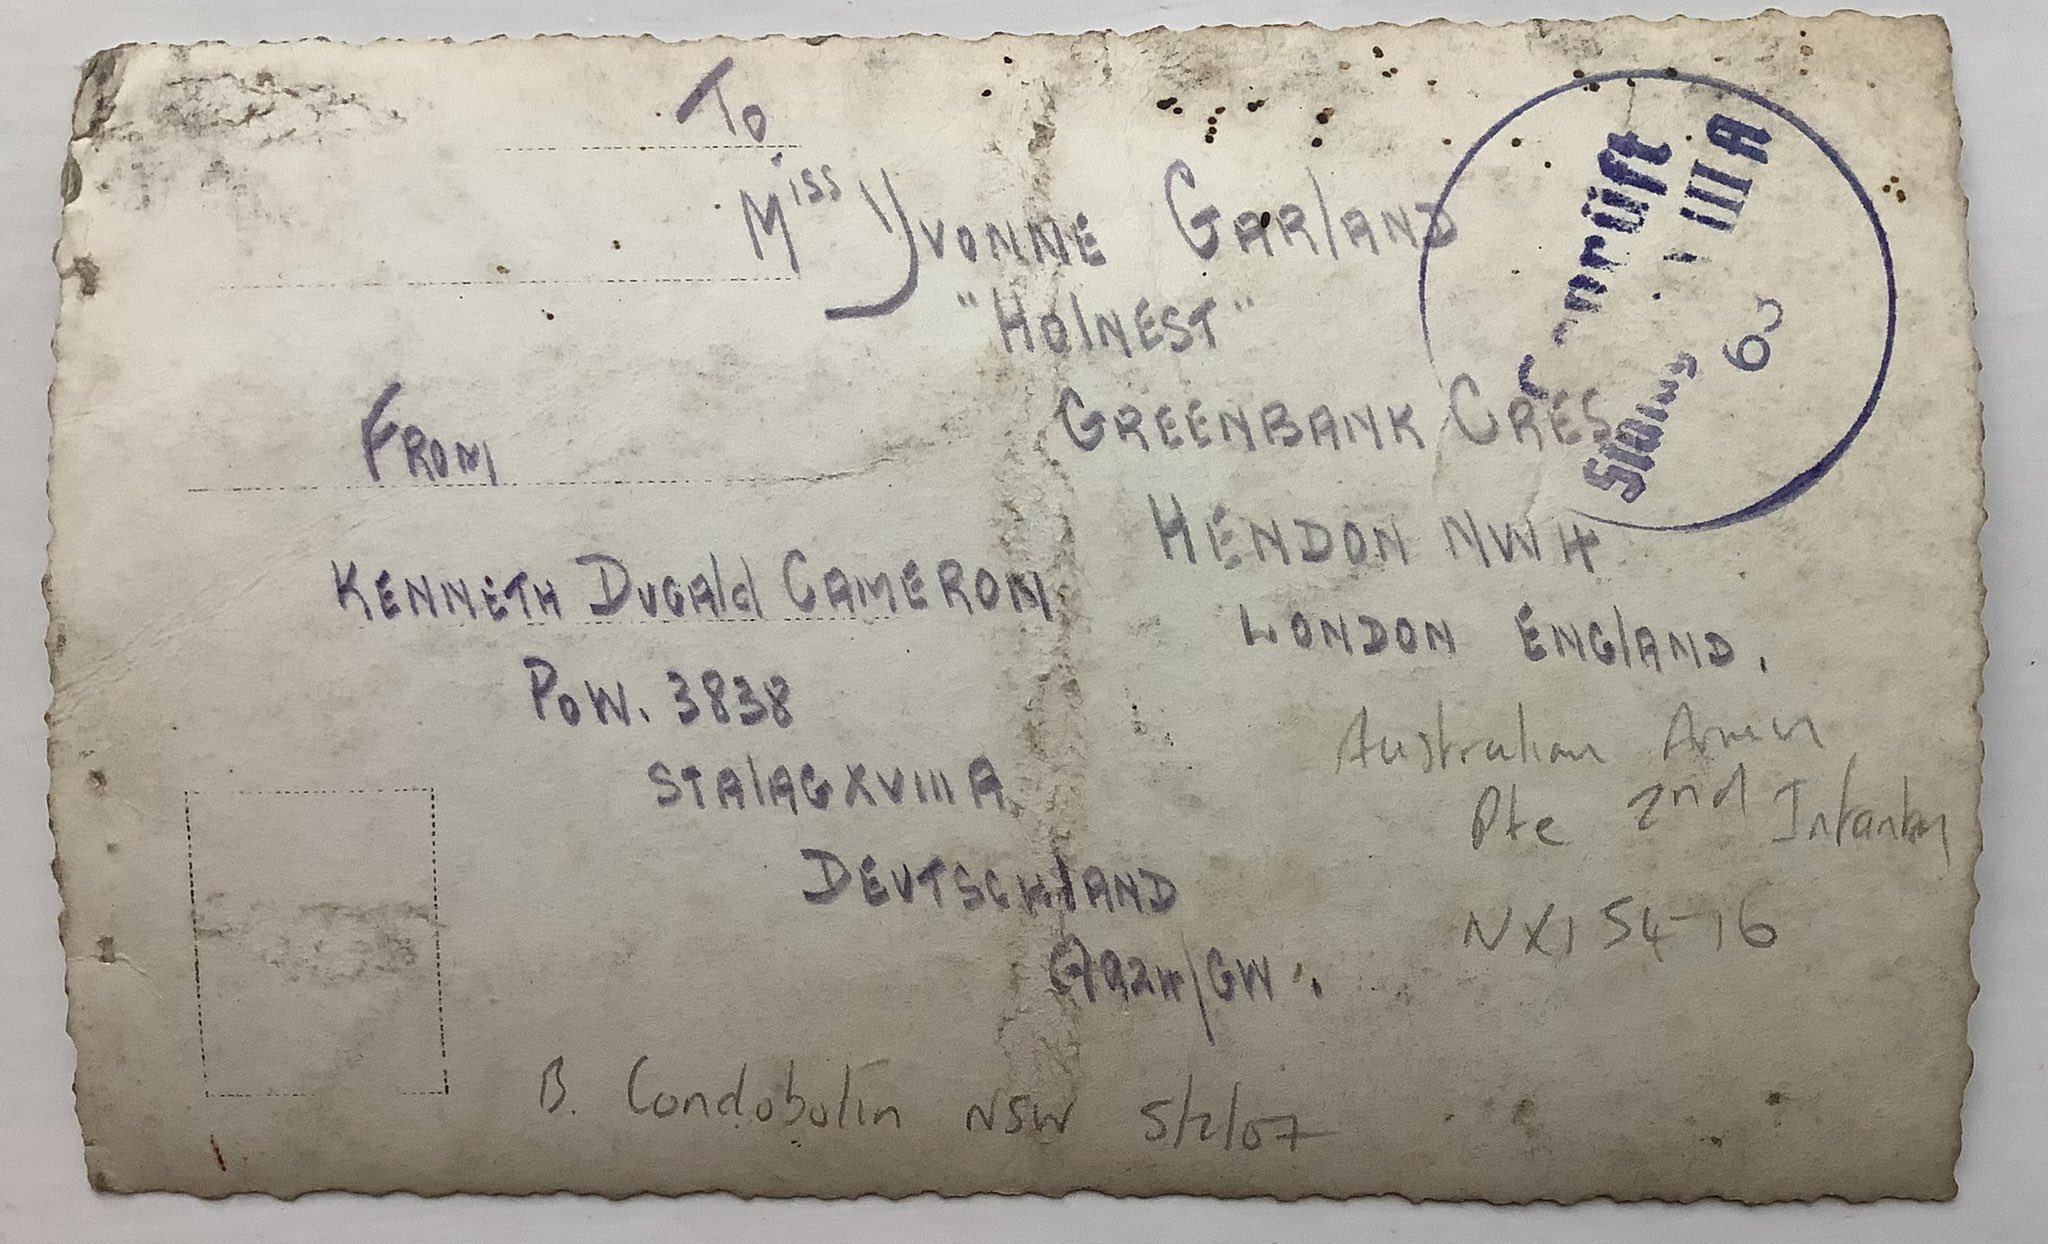 To
Miss Yvonne Garland
"Holnest"
Greenbank Cres
Hendon NW4
London England.
From
Kenneth Dugald Cameron
PoW. 3838
Stalag XVIII A.
Deutschland
Geprüft
Stalag XVIII A
Australian Army
Pte 2nd Infantry
NX15476
B. Condobolin NSW 5/2/07